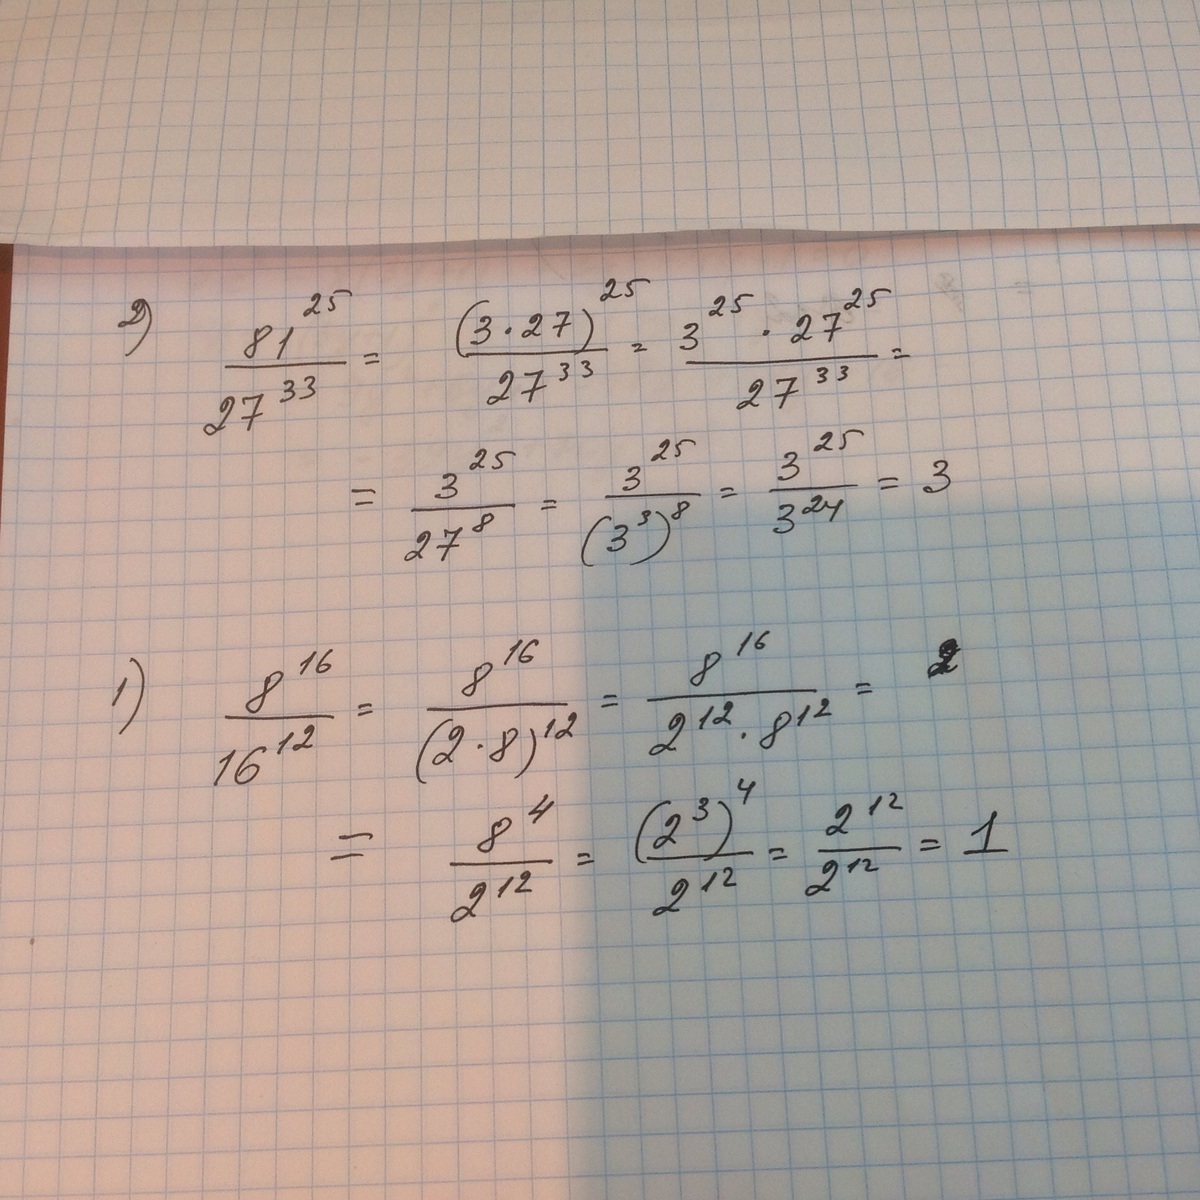 2) 81^25 / 27^33 = (3·27)^25 / 27^33 = 3^25 · 27^25 / 27^33 =
= 3^25 / 27^8 = 3^25 / (3^3)^8 = 3^25 / 3^24 = 3
1) 8^16 / 16^12 = 8^16 / (2·8)^12 = 8^16 / 2^12 · 8^12 = 2
= 8^4 / 2^12 = (2^3)^4 / 2^12 = 2^12 / 2^12 = 1